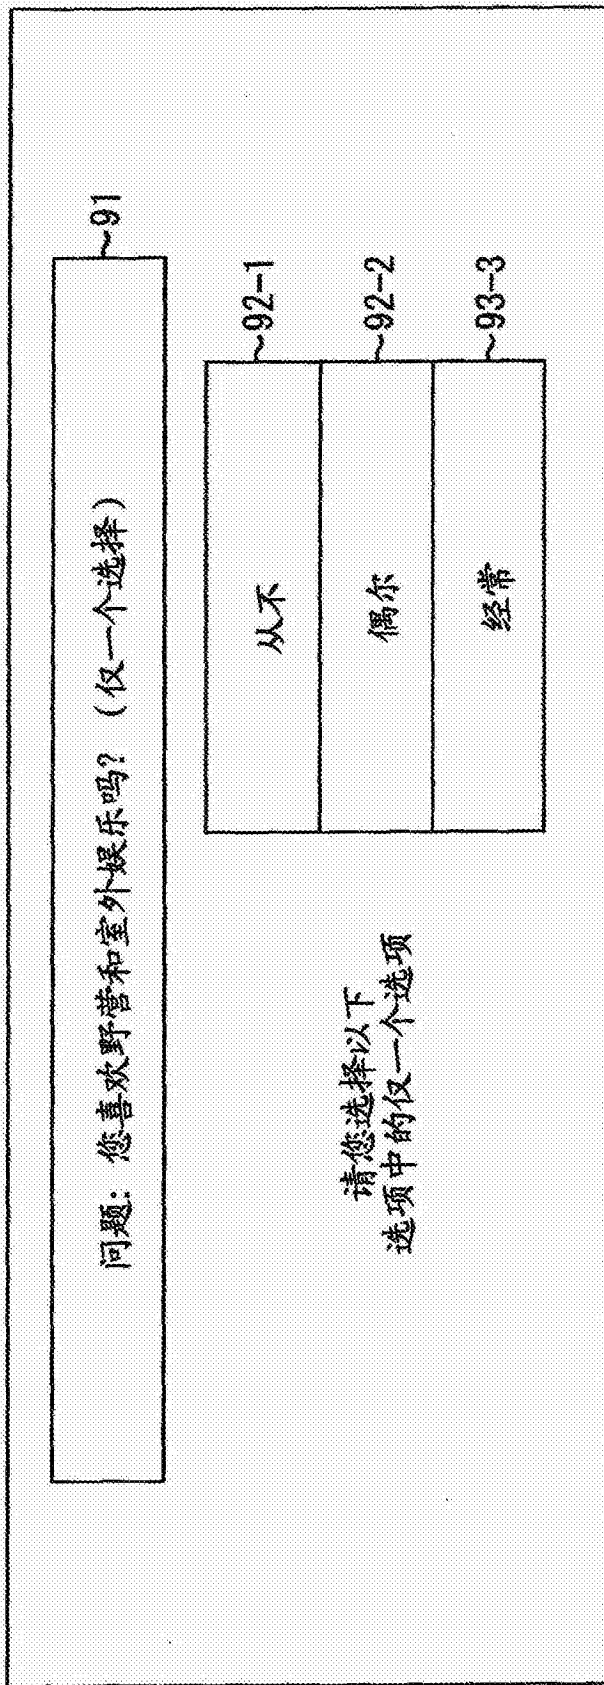 问题：您喜欢野营和室外娱乐吗？（仅一个选择）
~91
请您选择以下
选项中的仅一个选项
从不
~92-1
偶尔
~92-2
经常
~93-3